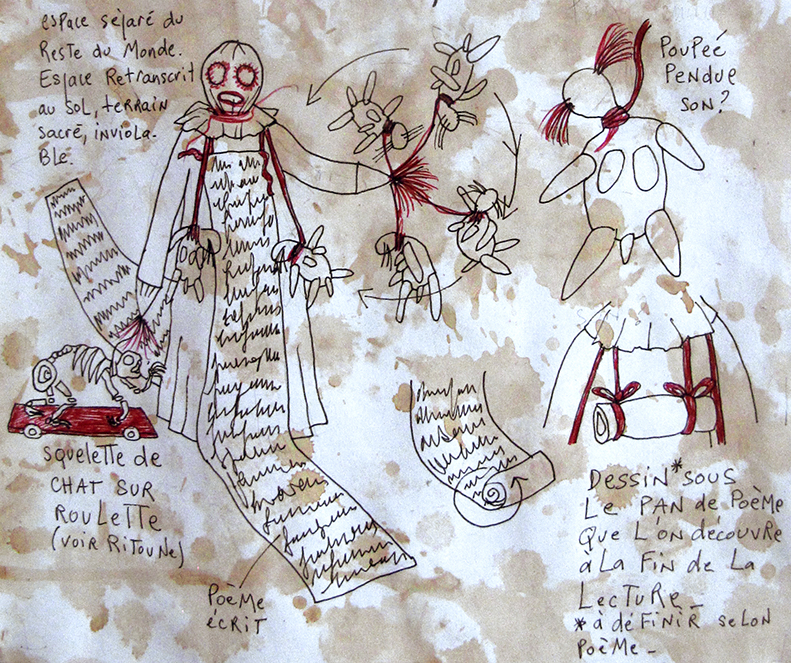 espace séparé du
Reste du Monde.
Espace Retranscrit
au sol, terrain
sacré, inviola-
BLe.
Poupeé
Pendue
Son?
squelette de
CHAT SUR
ROULETTE
(voir Ritoune)
Poème
écrit
Dessin* sous
Le PAN de Poème
Que L'on découvre
à La Fin de La
Lecture_
* à déFinir selon
Poème_